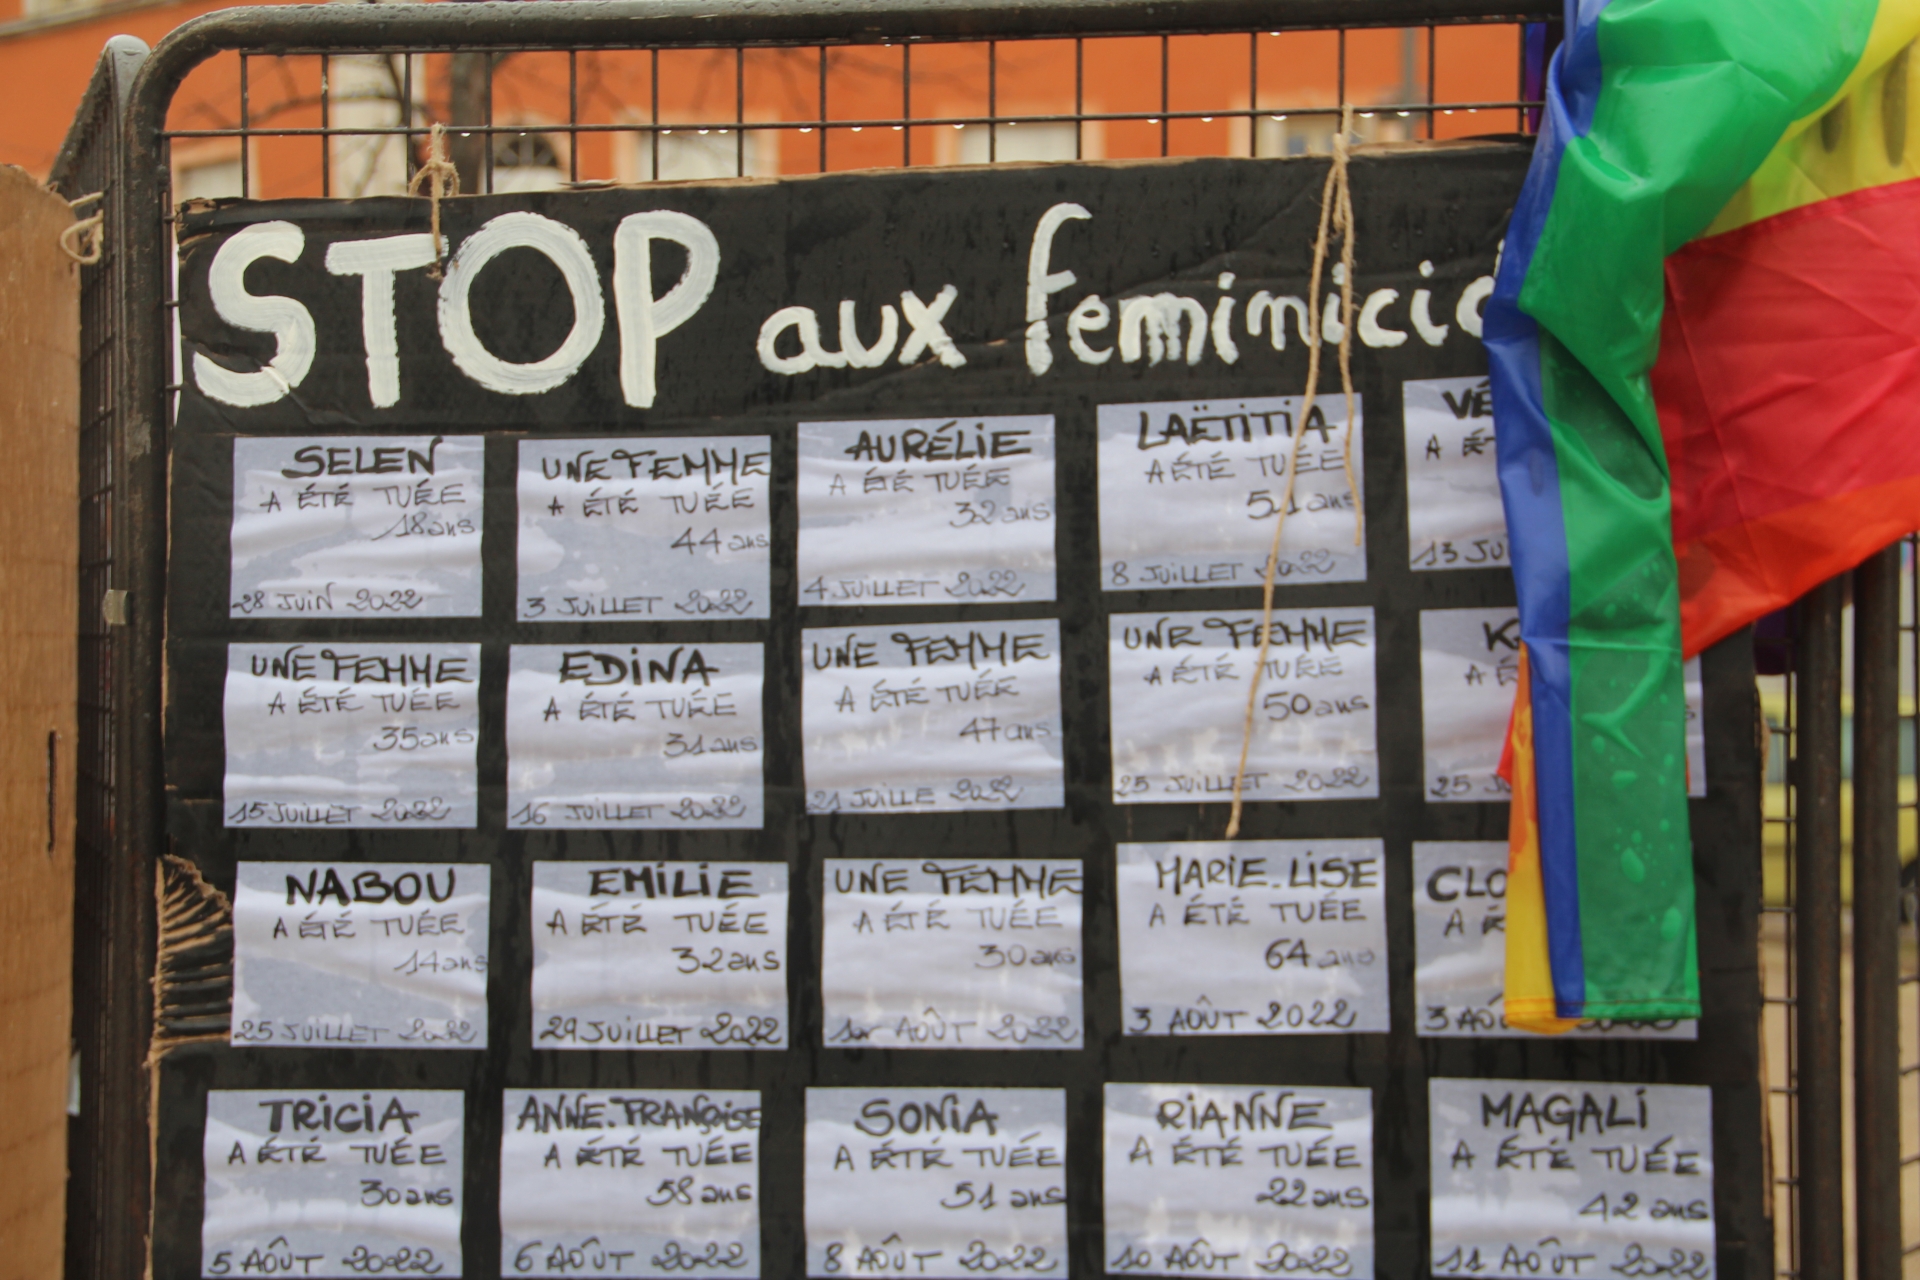 STOP aux feminici
SELEN
A ÉTÉ TUÉE
18 ans
28 JUIN 2022
UNE FEMME
A ÉTÉ TUÉE
44 ans
3 JUILLET 2022
AURÉLIE
A ÉTÉ TUÉE
32 ans
4 JUILLET 2022
LAËTITIA
A ÉTÉ TUÉE
51 ans
8 JUILLET 2022
VÉ
A ÉT
13 JUI
UNE FEMME
A ÉTÉ TUÉE
35 ans
15 JUILLET 2022
EDINA
A ÉTÉ TUÉE
31 ans
16 JUILLET 2022
UNE FEMME
A ÉTÉ TUÉE
47 ans
21 JUILLE 2022
UNE FEMME
A ÉTÉ TUÉE
50 ans
25 JUILLET 2022
K
A É
25 J
NABOU
A ÉTÉ TUÉE
14 ans
25 JUILLET 2022
EMILIE
A ÉTÉ TUÉE
32 ans
29 JUILLET 2022
UNE FEMME
A ÉTÉ TUÉE
30 ans
1er AOÛT 2022
MARIE.LISE
A ÉTÉ TUÉE
64 ans
3 AOÛT 2022
CLO
A É
3 AOÛ
TRICIA
A ÉTÉ TUÉE
30 ans
5 AOÛT 2022
ANNE.FRANÇOISE
A ÉTÉ TUÉE
58 ans
6 AOÛT 2022
SONIA
A ÉTÉ TUÉE
51 ans
8 AOÛT 2022
RIANNE
A ÉTÉ TUÉE
22 ans
10 AOÛT 2022
MAGALI
A ÉTÉ TUÉE
42 ans
11 AOÛT 2022